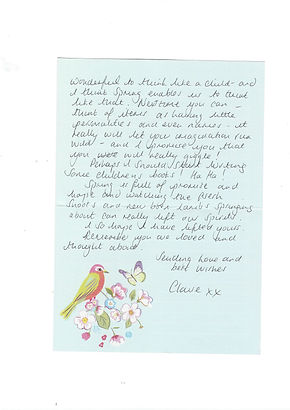 wonderful to think like a child - and
I think Spring enables us to think
like that. Next time you can -
think of items as having little
personalities and even names - it
really will let your imagination run
wild - and I promise you that
you were will really giggle!
Perhaps I should start writing
some children's books! Ha Ha!
Spring is full of promise and
hope and watching the fresh
shoots and new born lambs springing
about can really lift our spirits.
I so hope I have lifted yours.
Remember you are loved and
thought about.
Sending love and
best wishes
Claire xx